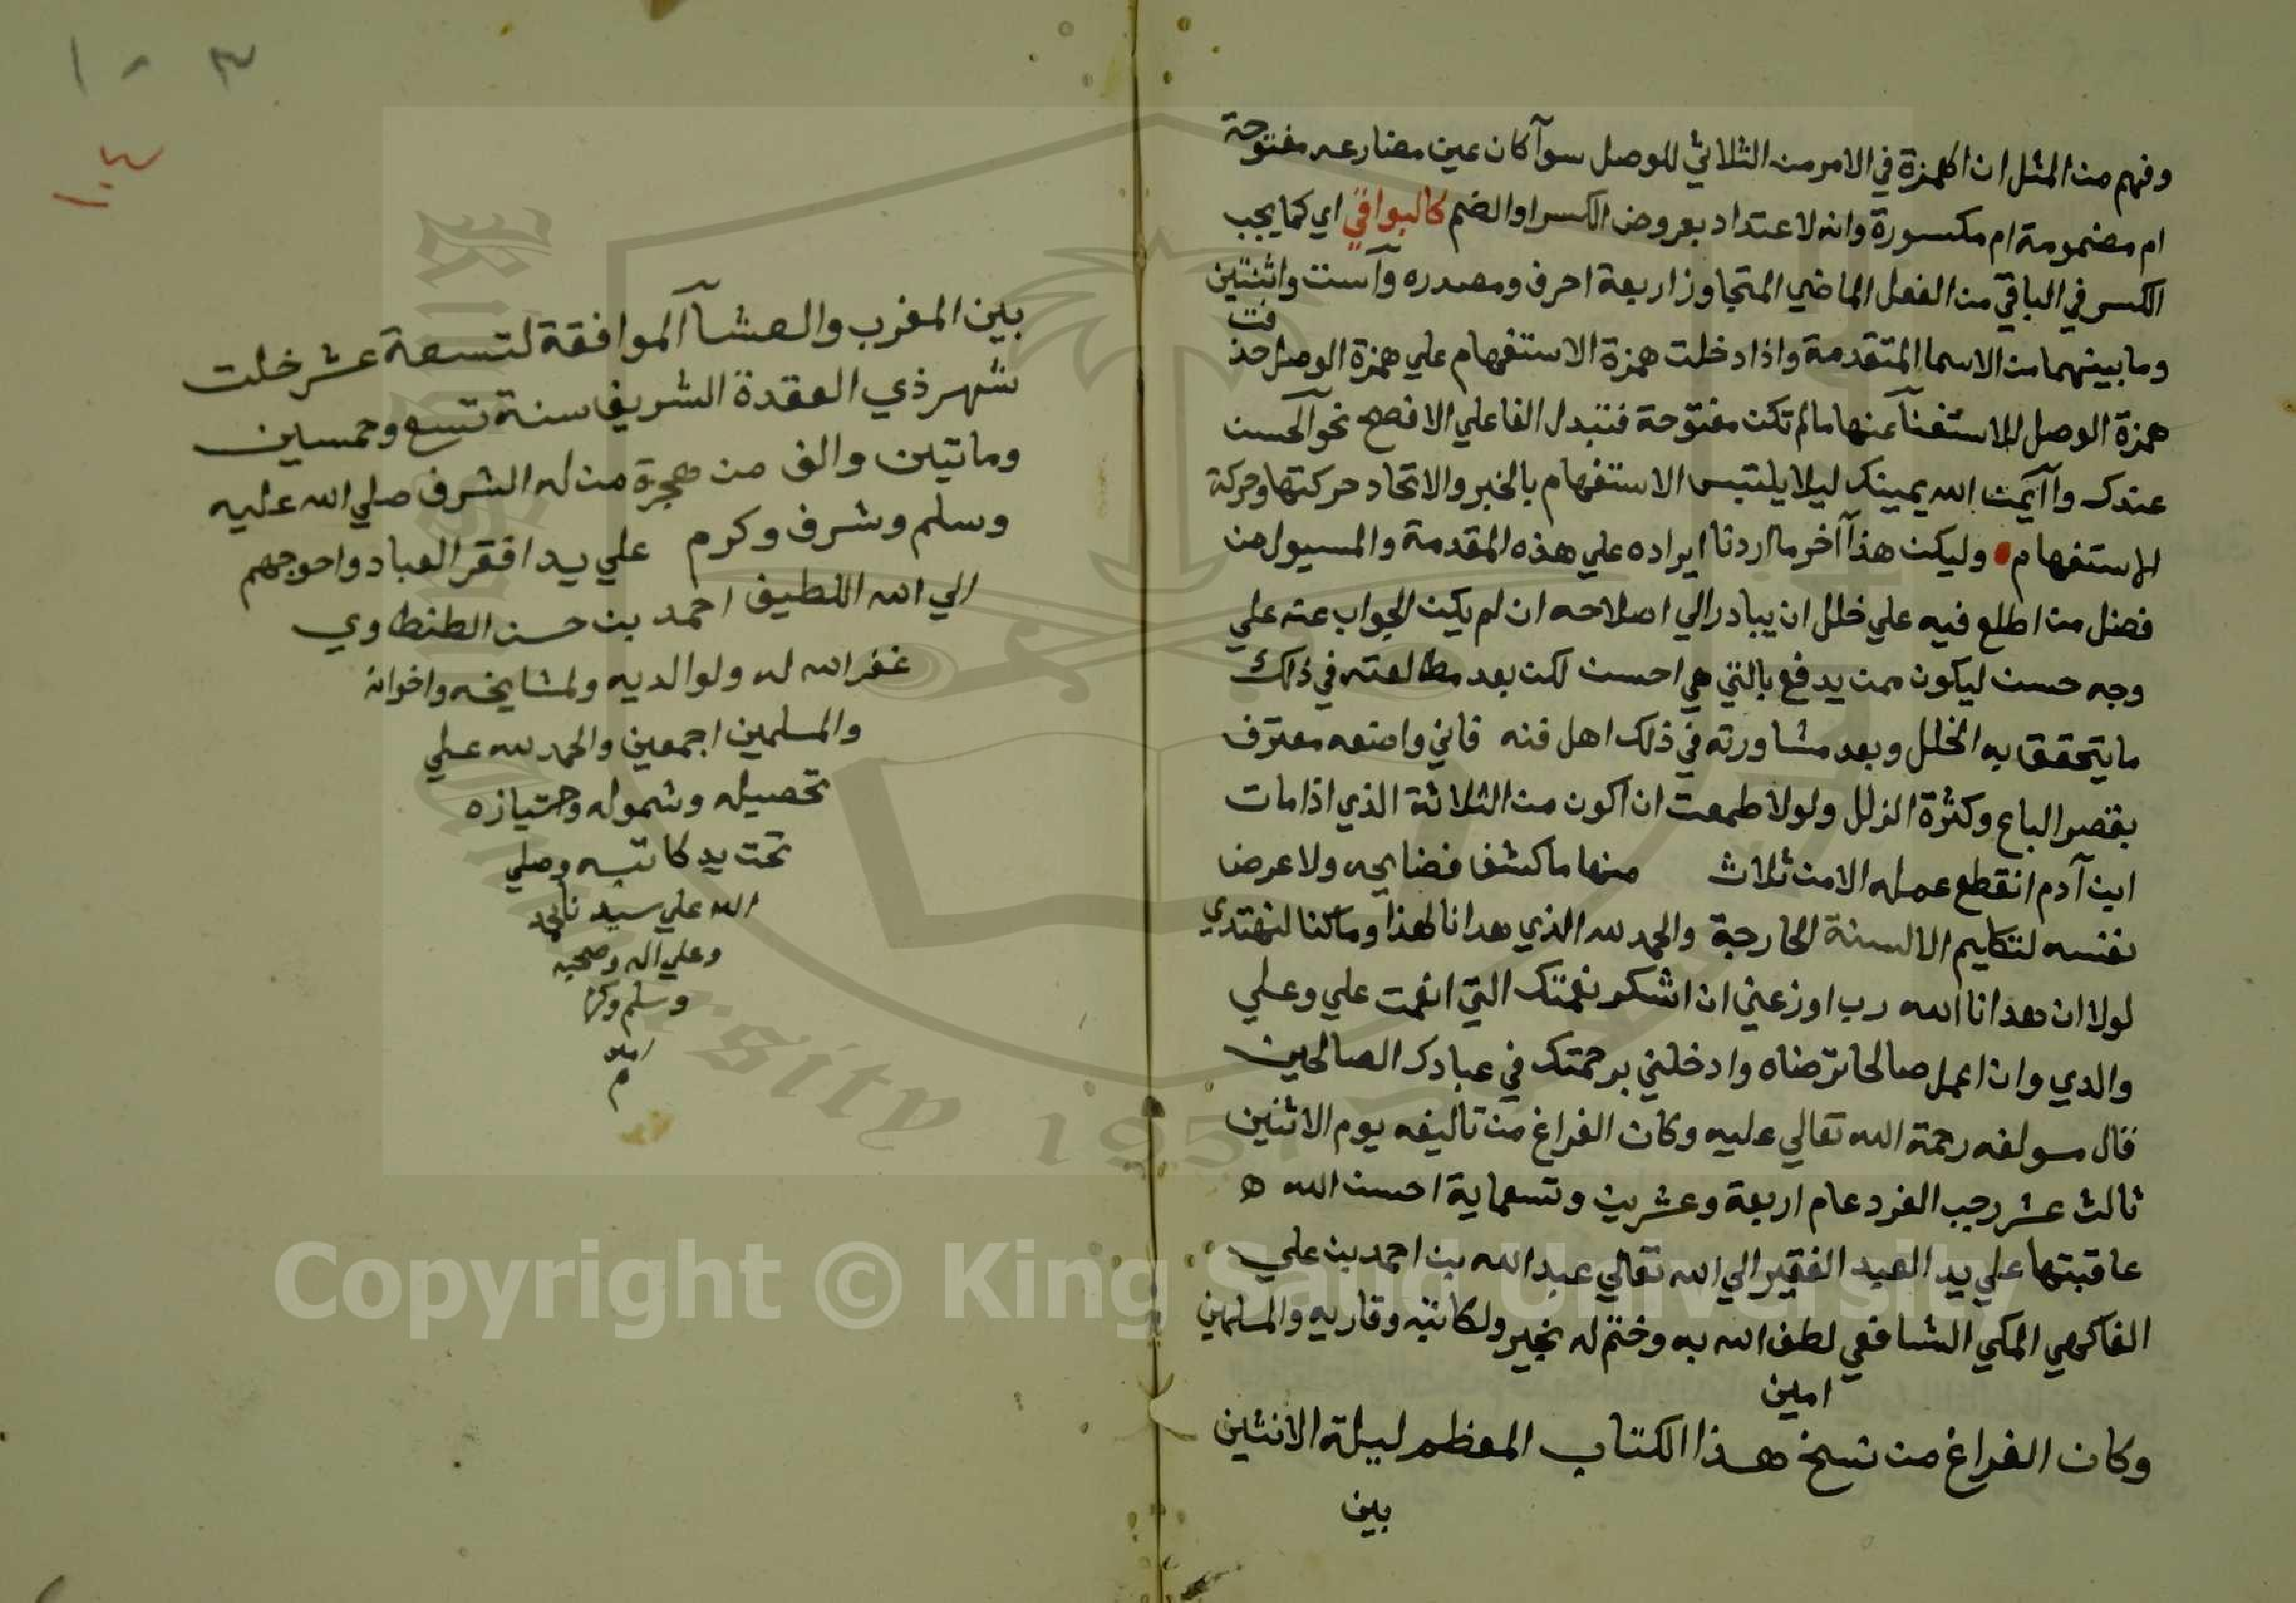 وفهم من المثل ان الهمزة في الامر من الثلاثي للوصل سوآ كان عين مضارعه مفتوحة
ام مضمومة ام مكسورة وانه لا عتداد بعروض الكسر او الضم كالبواقي اي كما يجب
الكسر في الباقي من الفعل الماضي المتجاوز اربعة احرف ومصدره وآست واثنتين
وما بينهما من الاسما المتقدمة واذا دخلت همزة الاستفهام علي همزة الوصل حذفت
همزة الوصل للاستغنآ عنها مالم تكن مفتوحة فتبدل الفا علي الافصح نحو آلحسن
عندك وآايمن الله يمينك ليلا يلتبس الاستفهام بالخبر والاتحاد حركتها وحركة
الاستفهام وليكن هذا آخر ما اردنا ايراده علي هذه المقدمة والمسيول من
فضل من اطلع فيه علي خلل ان يبادر الي اصلاحه ان لم يكن الجواب عنه علي
وجه حسن ليكون ممن يدفع بالتي هي احسن لكن بعد مطالعته في ذلك
ما يتحقق به الخلل وبعد مشاورته في ذلك اهل فنه فاني واضعه معترف
بقصر الباع وكثرة الزلل ولولا طمعت ان اكون من الثلاثة الذي اذا مات
ابن آدم انقطع عمله الا من ثلاث منها ما كشف فضايحه ولا عرض
نفسه لتكليم الالسنة الجارحة والحمد لله الذي هدانا لهذا وما كنا لنهتدي
لولا ان هدانا الله رب اوزعني ان اشكر نعمتك التي انعمت علي وعلي
والدي وان اعمل صالحا ترضاه وادخلني برحمتك في عبادك الصالحين
قال مولفه رحمة الله تعالي عليه وكان الفراغ من تاليفه يوم الاثنين
ثالث عشر رجب الفرد عام اربعة وعشرين وتسعماية احسن الله ه
عاقبتها علي يد العبد الفقير الي الله تعالي عبد الله بن احمد بن علي
الفاكهي المكي الشافعي لطف الله به وختم له بخير ولكاتبه وقاريه والمسلمين
امين
وكان الفراغ من نسخ هذا الكتاب المعظم ليلة الاثنين
بين
١٠٣
١٠٤
بين المغرب والعشآ الموافقة لتسعة عشر خلت
شهر ذي القعدة الشريف سنة تسع وخمسين
وماتين والف من هجرة من له الشرف صلي الله عليه
وسلم وشرف وكرم علي يد افقر العباد واحوجهم
الي الله اللطيف احمد بن حسن الطنطاوي
غفر الله له ولوالديه ولمشايخه واخوانه
والمسلمين اجمعين والحمد لله علي
تحصيله وشموله وحتيازه
تحت يد كاتبه وصلي
الله علي سيدنا محمد
وعلي اله وصحبه
وسلم
امين
م
Copyright © King Saud University